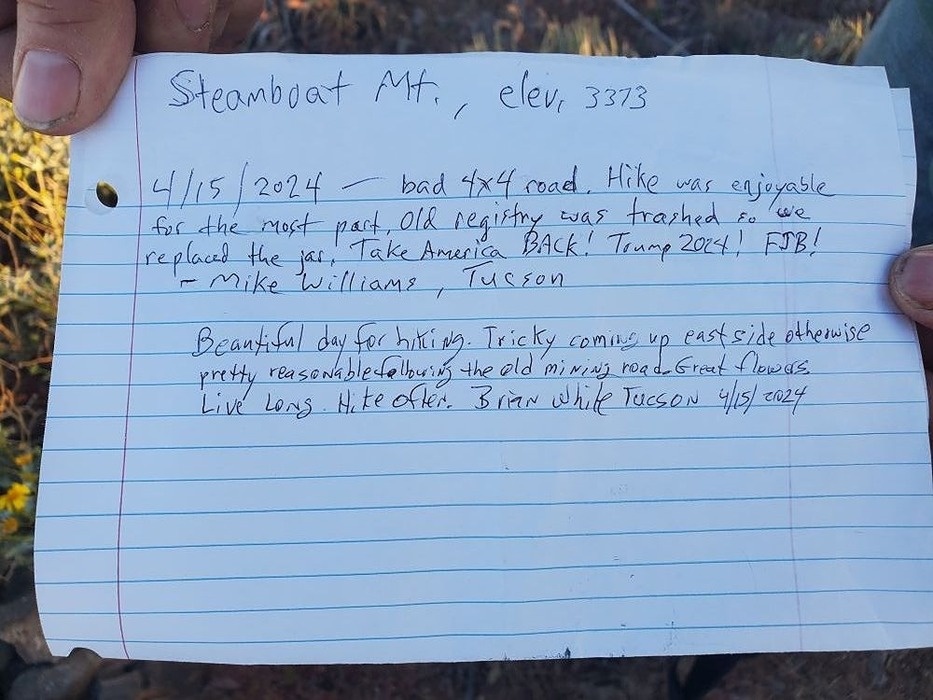 Steamboat Mt., elev. 3373
4/15/2024 — bad 4x4 road. Hike was enjoyable
for the most part. Old registry was trashed so we
replaced the jar. Take America BACK! Trump 2024! FJB!
- Mike Williams, Tucson
Beautiful day for hiking. Tricky coming up east side otherwise
pretty reasonable following the old mining road. Great flowers.
Live Long. Hike often. Brian White Tucson 4/15/2024